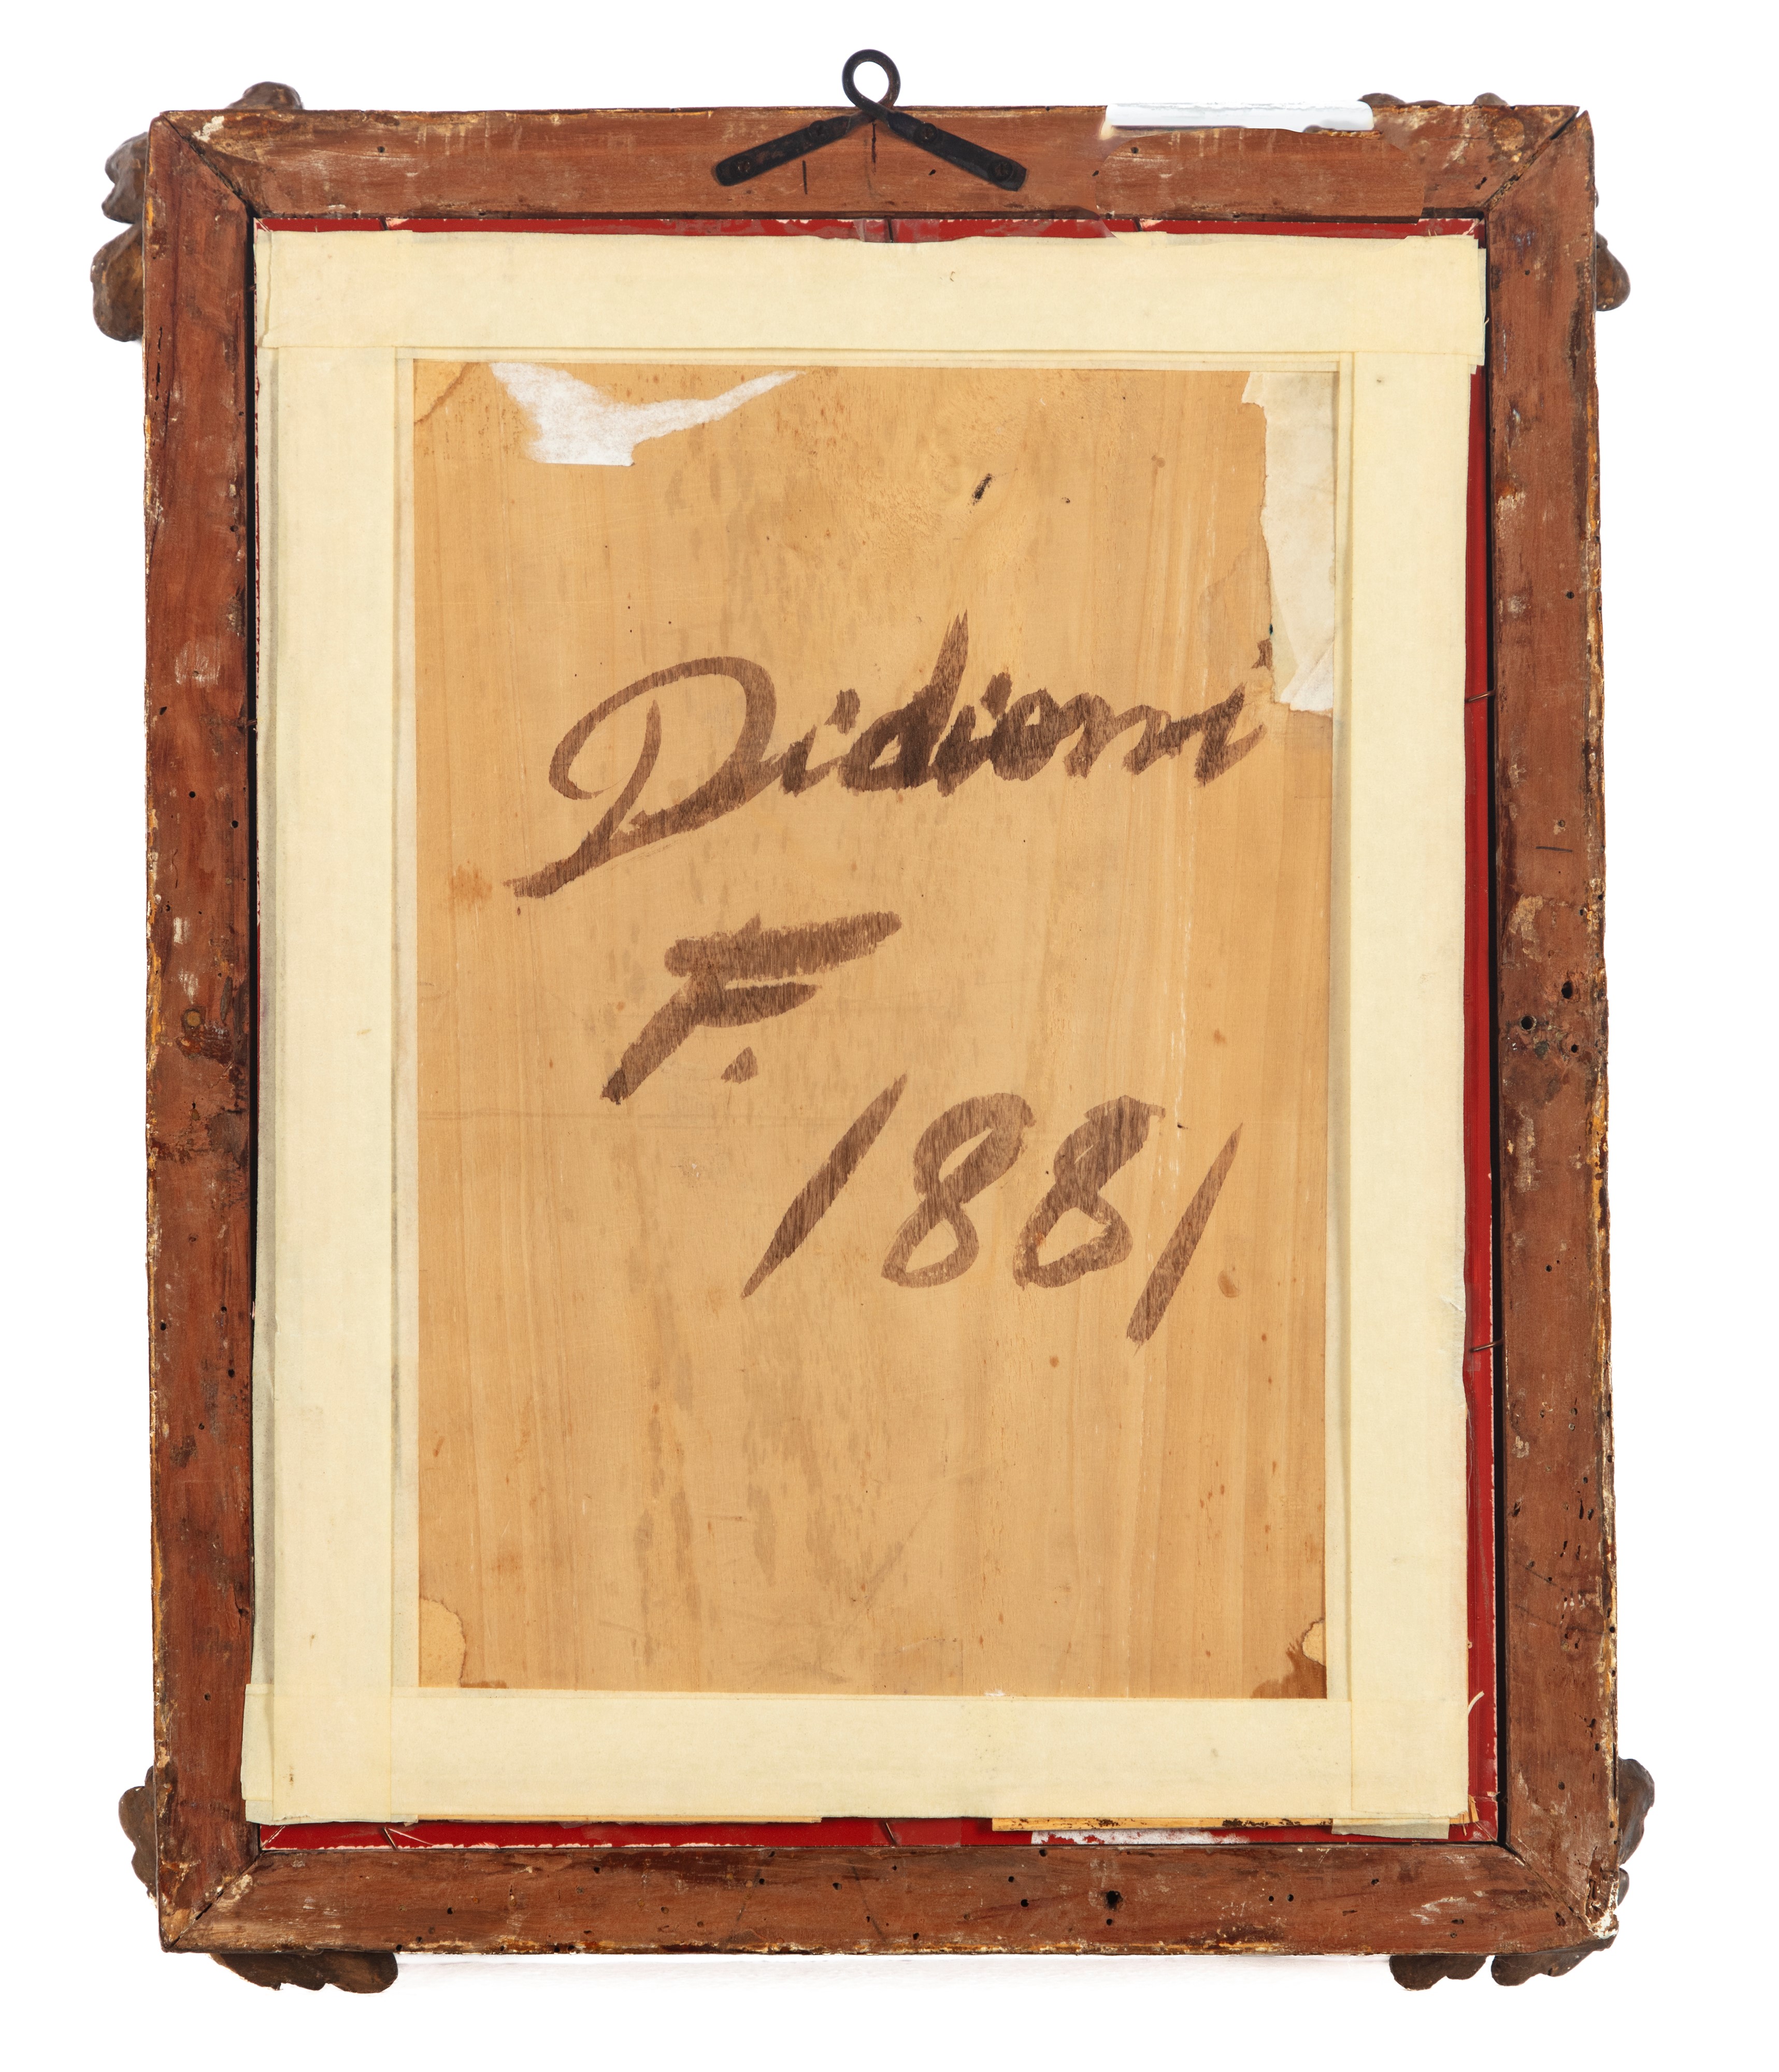 Didioni
F.
1881